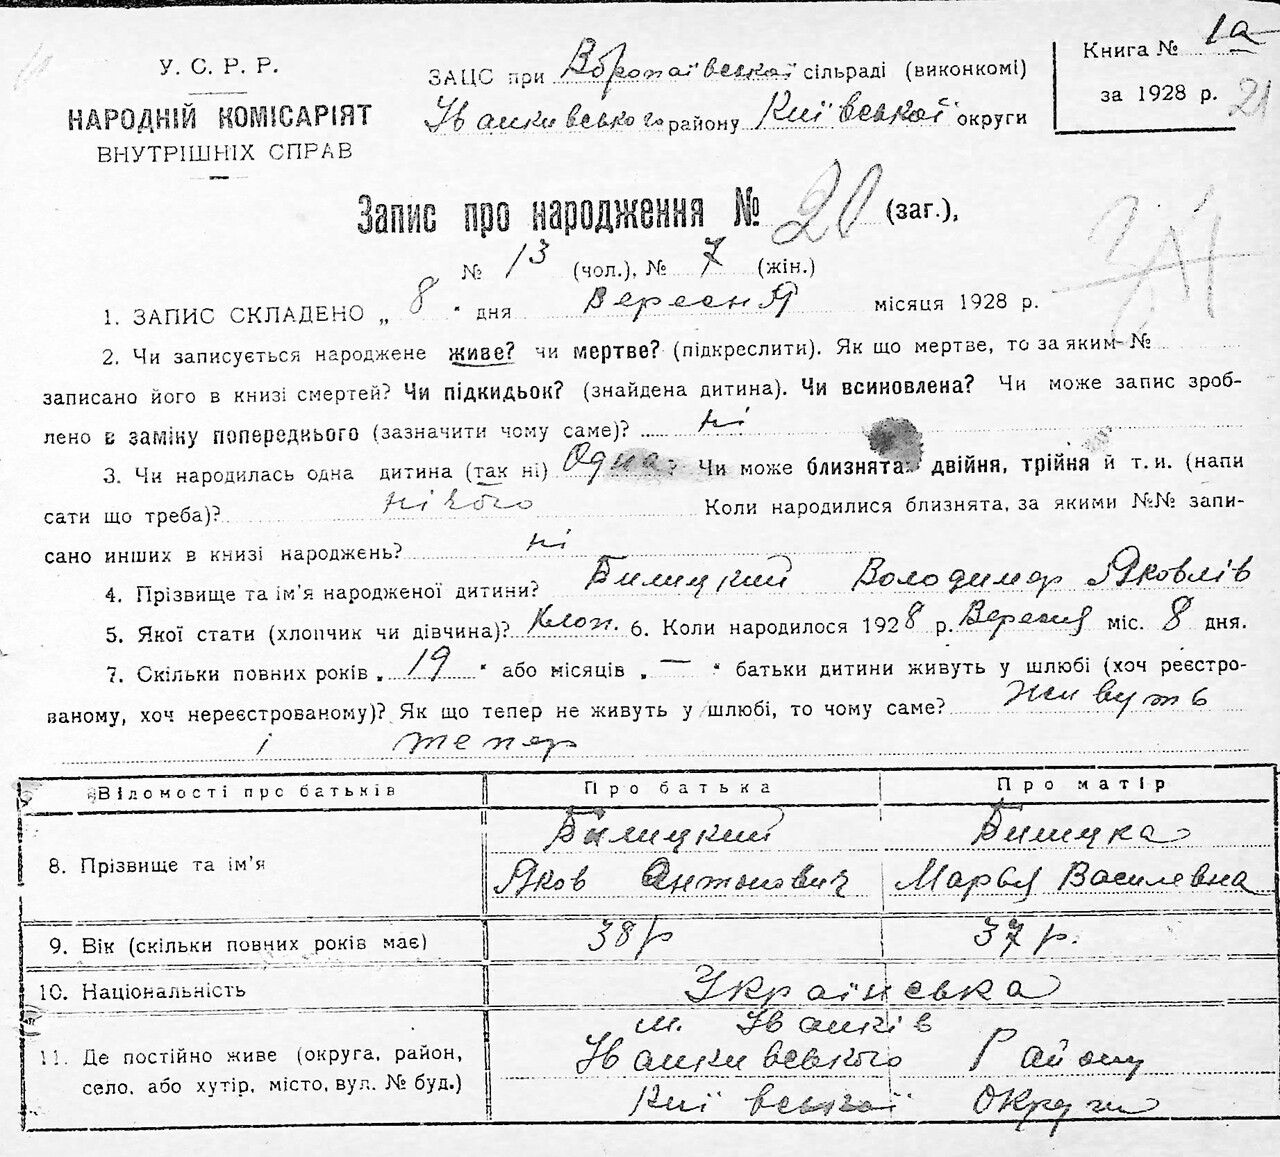 У. С. Р. Р.
НАРОДНІЙ КОМІСАРІЯТ
ВНУТРІШНІХ СПРАВ
ЗАЦС при сільраді (виконкомі)
Іванкивського району Київської округи
Книга № 1а
за 1928 р. 21
Запис про народження № 20 (заг.),
№ 13 (чол.), № 7 (жін.)
1. ЗАПИС СКЛАДЕНО „ 8 " дня Вересня місяця 1928 р.
2. Чи записується народжене живе? чи мертве? (підкреслити). Як що мертве, то за яким №
записано його в книзі смертей? Чи підкидьок? (знайдена дитина). Чи всиновлена? Чи може запис зроб-
лено в заміну попереднього (зазначити чому саме)? ні
3. Чи народилась одна дитина (так ні) Одна? Чи може близнята: двійня, трійня й т. и. (напи
сати що треба)? нічого Коли народилися близнята, за якими №№ запи-
сано инших в книзі народжень? ні
4. Прізвище та ім'я народженої дитини? Билицкий Володимер Яковлів
5. Якої стати (хлопчик чи дівчина)? Хлоп. 6. Коли народилося 1928 р. Вересня міс. 8 дня.
7. Скільки повних років „ 19 " або місяців „ — " батьки дитини живуть у шлюбі (хоч реєстро-
ваному, хоч нереєстрованому)? Як що тепер не живуть у шлюбі, то чому саме? живуть
і тепер
Відомості про батьків Про батька Про матір
Билицкий Билицка
8. Прізвище та ім'я Яков Антонович Марья Василевна
9. Вік (скільки повних років має) 38 р 37 р.
10. Національність Українська
м. Іванків
11. Де постійно живе (округа, район, Іванкивського Району
село, або хутір, місто, вул. № буд.) Київської Округи